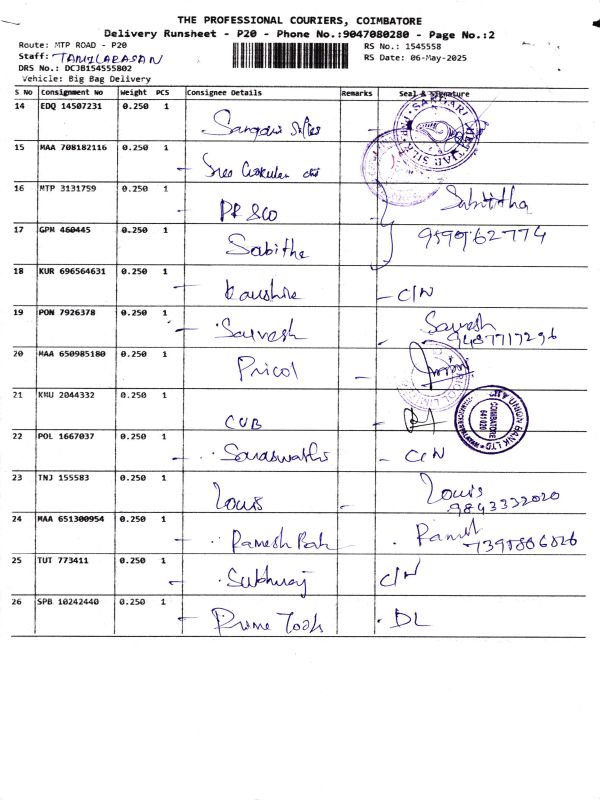 THE PROFESSIONAL COURIERS, COIMBATORE
Delivery Runsheet - P20 - Phone No.:9047080280 - Page No.:2
Route: MTP ROAD - P20
RS No.: 1545558
Staff: TAMILARASAN
RS Date: 06-May-2025
DRS No.: DCJB154555802
Vehicle: Big Bag Delivery
S No Consignment No Weight PCS Consignee Details Remarks Seal & Signature
14 EDQ 14507231 0.250 1
15 MAA 708182116 0.250 1
16 MTP 3131759 0.250 1 PR & CO Sabittha
17 GPM 460445 0.250 1 Sabitha 9590962774
18 KUR 696564631 0.250 1 C/N
19 PON 7926378 0.250 1 Sarvesh Sarvesh
9487717296
20 MAA 650985180 0.250 1 Pricol
21 KMU 2044332 0.250 1 CUB
CITY UNION BANK LTD
COIMBATORE
641 020
22 POL 1667037 0.250 1 Saraswathi C/N
23 TNJ 155583 0.250 1 Louis Louis
9843332020
24 MAA 651300954 0.250 1 Ramesh
25 TUT 773411 0.250 1 C/N
26 SPB 10242440 0.250 1 Prime DL